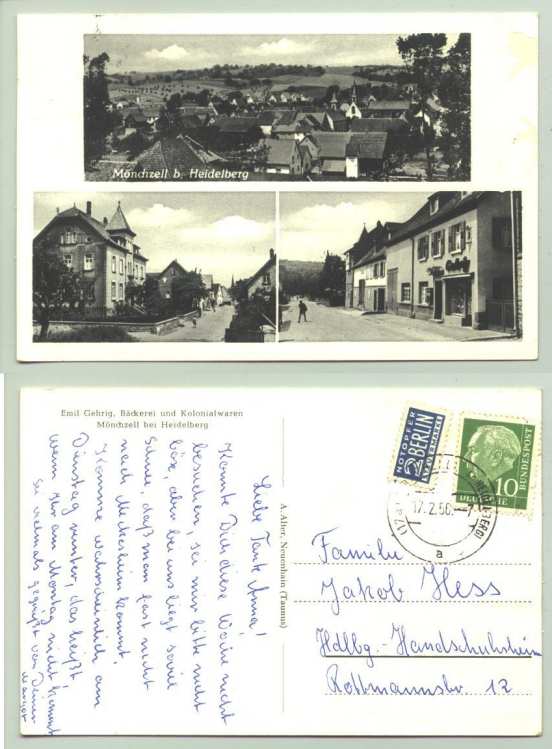 Mönchzell b. Heidelberg
Emil Gehrig, Bäckerei und Kolonialwaren
Mönchzell bei Heidelberg
Liebe Tante Anna!
Konnte Dich diese Woche nicht
besuchen, sei mir bitte nicht
böse, aber bei uns liegt soviel
Schnee, daß man fast nicht
nach Meckesheim kommt.
Komme wahrscheinlich am
Dienstag runter, das heißt
wenn Ihr am Montag nicht kommt
Sei vielmals gegrüßt von Deiner
Margot
A. Alter, Neuenhain (Taunus)
NOTOPFER
2 BERLIN
STEUERMARKE
DEUTSCHE
BUNDESPOST
10
17.2.56.-7
a
Familie
Jakob Hess
Hdlbg.-Handschuhsheim
Rottmannstr. 12